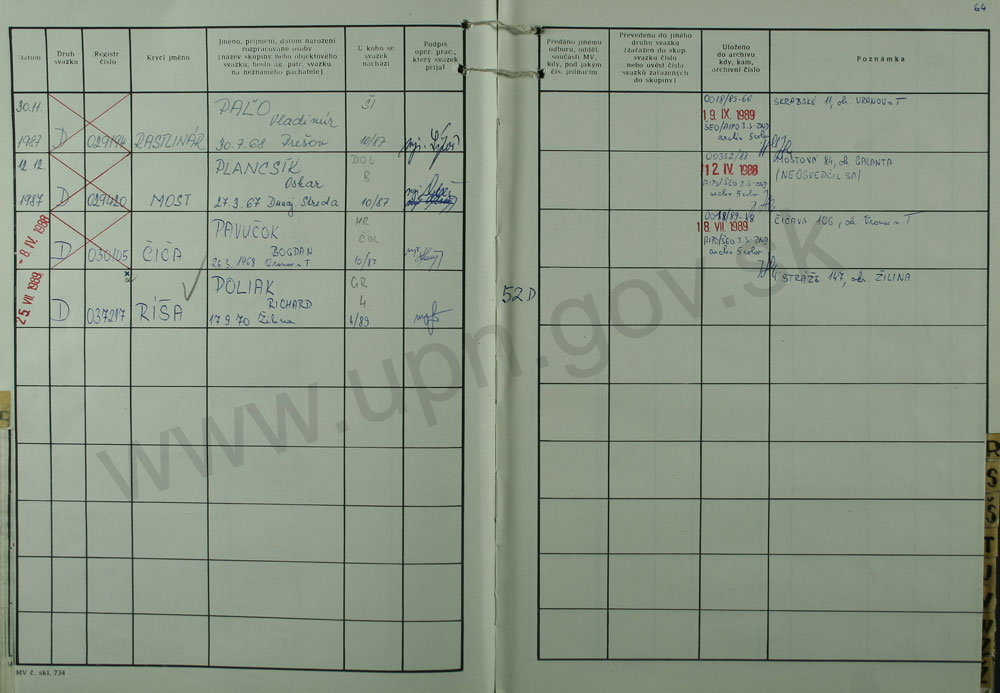 64
Datum
Druh svazku
Registr. číslo
Krycí jméno
Jméno, příjmení, datum narození
rozpracované osoby
(název skupiny nebo objektového
svazku, heslo ag. pátr. svazku
na neznámého pachatele)
U koho se
svazek
nachází
Podpis
oper. prac.,
který svazek
přijal
Předáno jinému
odboru, odděl.
součásti MV,
kdy, pod jakým
čís. jednacím
Převedeno do jiného
druhu svazku
(zařazen do skup.
svazku číslo
nebo uvést čísla
svazků zařazených
do skupiny)
Uloženo
do archívu
kdy, kam,
archivní číslo
Poznámka
30.11.
1987 D 029194 RASTLINÁR
PAĽO
Vladimír
30.7.68 Prešov
10/87
0018/89-66
19. IX. 1989
ŠEO/AIPO 3.S ZNB
archív Scolov
12.12.
1987 D 029420 MOST
PLANCSÍK
Oskar
27.3.67 Dunaj. Streda
DOL
8
10/87
00352/88
12. IV. 1988
MOSTOVÁ 84, ok. GALANTA
(NEOSVEDČIL SA)
- 8. IV. 1988
D 030105 ČIČA
PAVUČOK
BOGDAN
26.3.1968 Vranov n T.
10/87
18. VII. 1989
AIPO/ŠEO 3.S ZNB
ČIČAVA 106, ok. Vranov n T
25. VII. 1989
D 037217 RÍŠA
POLIAK
RICHARD
17.9.70 Žilina
GR
4.
4/89
52 D
STRÁŽE 147, ok. ŽILINA
www.upn.gov.sk
MV č. skl. 734
R
S
Š
T
U
V